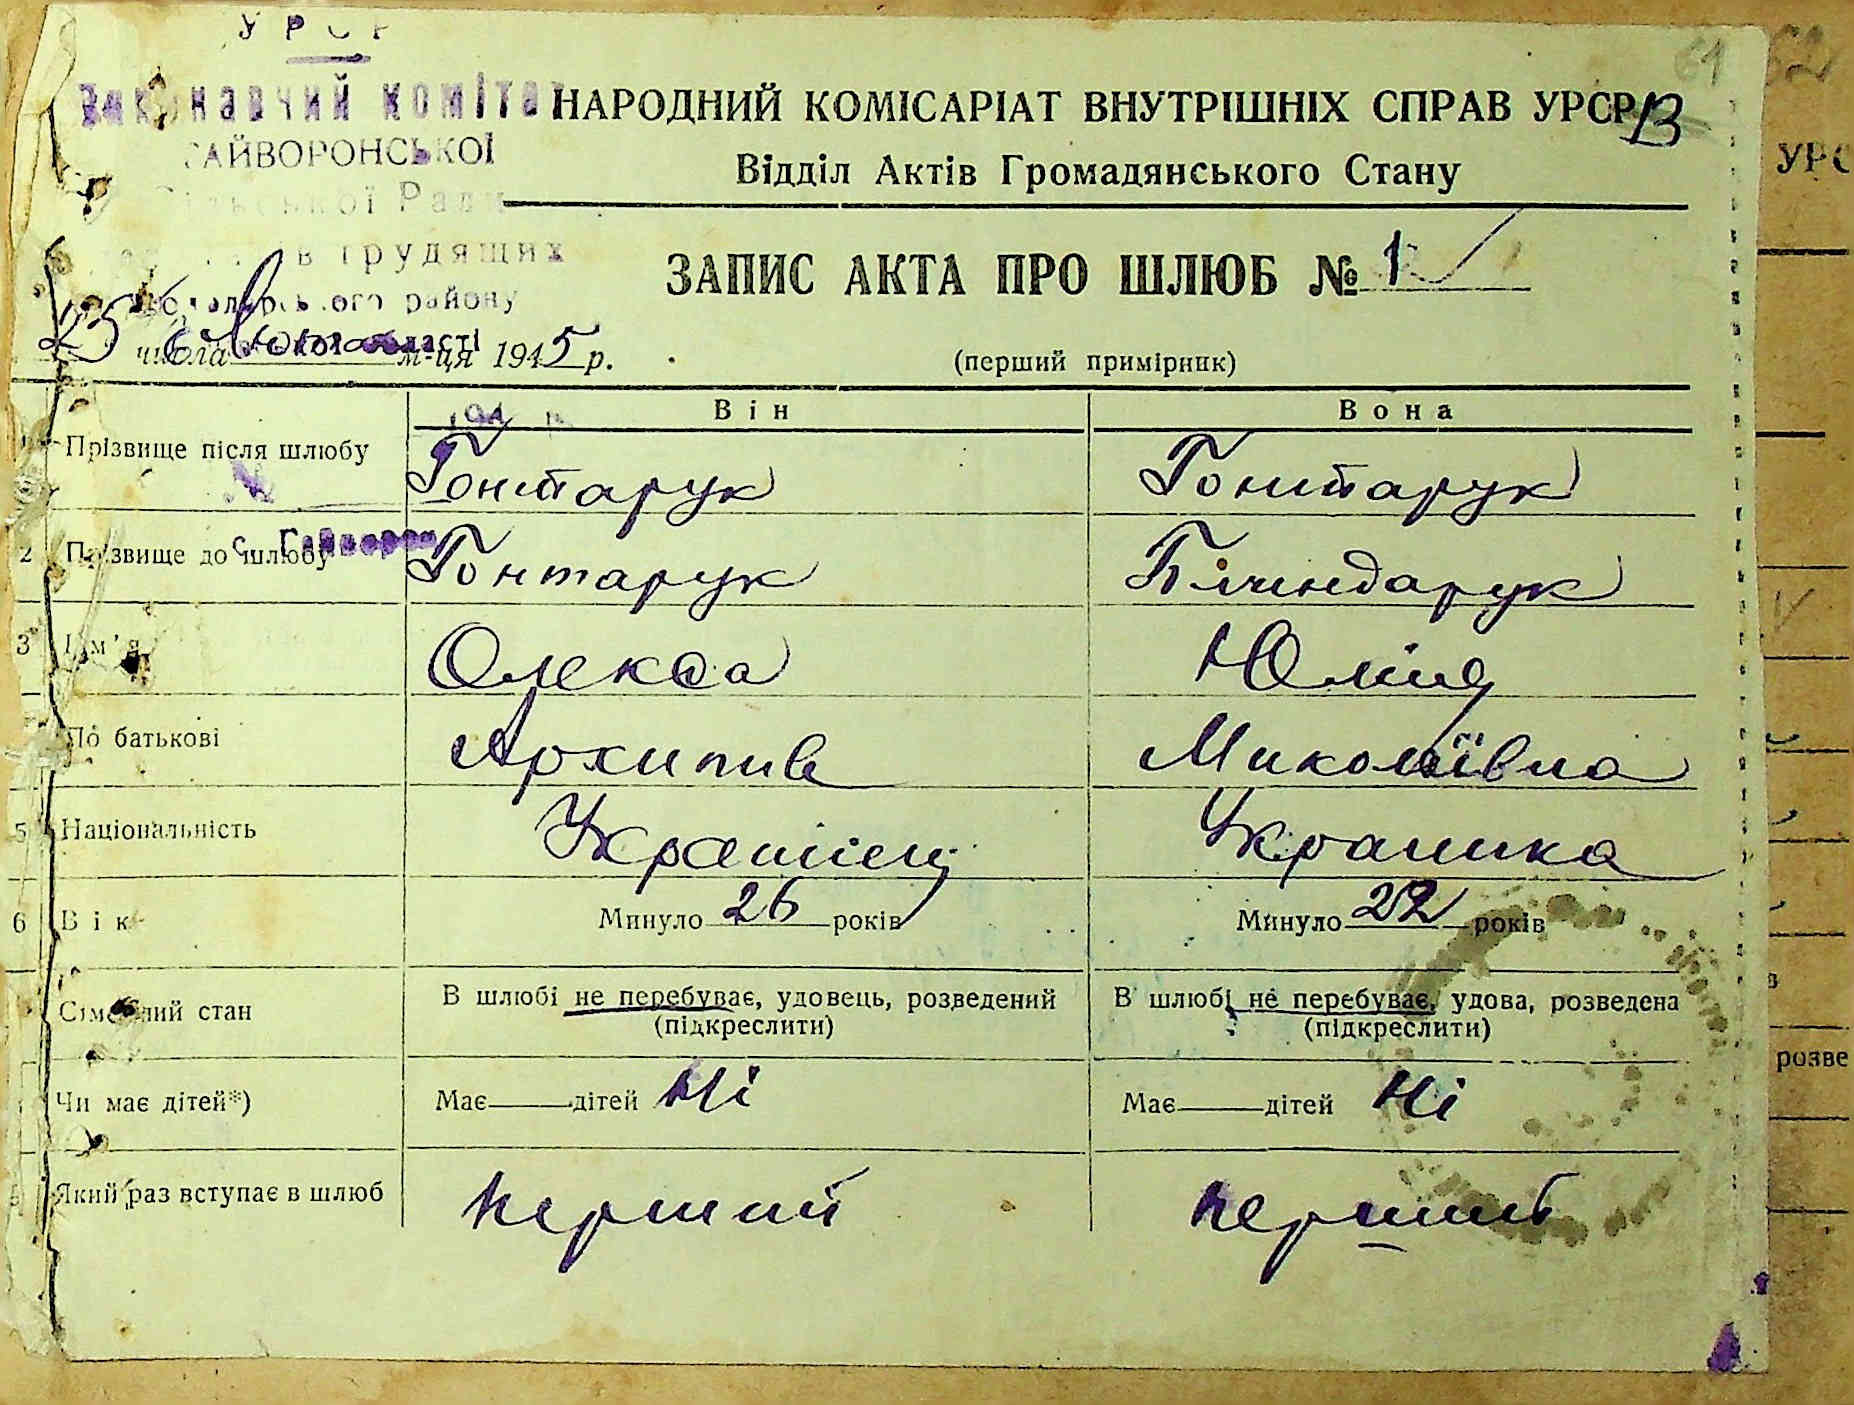 УРСР
Виконавчий комітет
ГАЙВОРОНСЬКОЇ
Сільської Ради
трудящих
району
61
62
НАРОДНИЙ КОМІСАРІАТ ВНУТРІШНІХ СПРАВ УРСР
В
Відділ Актів Громадянського Стану
ЗАПИС АКТА ПРО ШЛЮБ № 1
25 числа Лютого м-ця 1945 р.
(перший примірник)
Він Вона
Прізвище після шлюбу Гонтарук Гонтарук
с. Гайворон
2 Прізвище до шлюбу Гонтарук
3 Ім'я Олекса Юлія
По батькові Архипів Миколаївна
5 Національність Українец Украинка
6 Вік Минуло 26 років Минуло 22 років
Сімейний стан В шлюбі не перебуває, удовець, розведений В шлюбі не перебуває, удова, розведена
(підкреслити) (підкреслити)
Чи має дітей*) Має дітей Ні Має дітей Ні
Який раз вступає в шлюб перший перший
УРС
розве